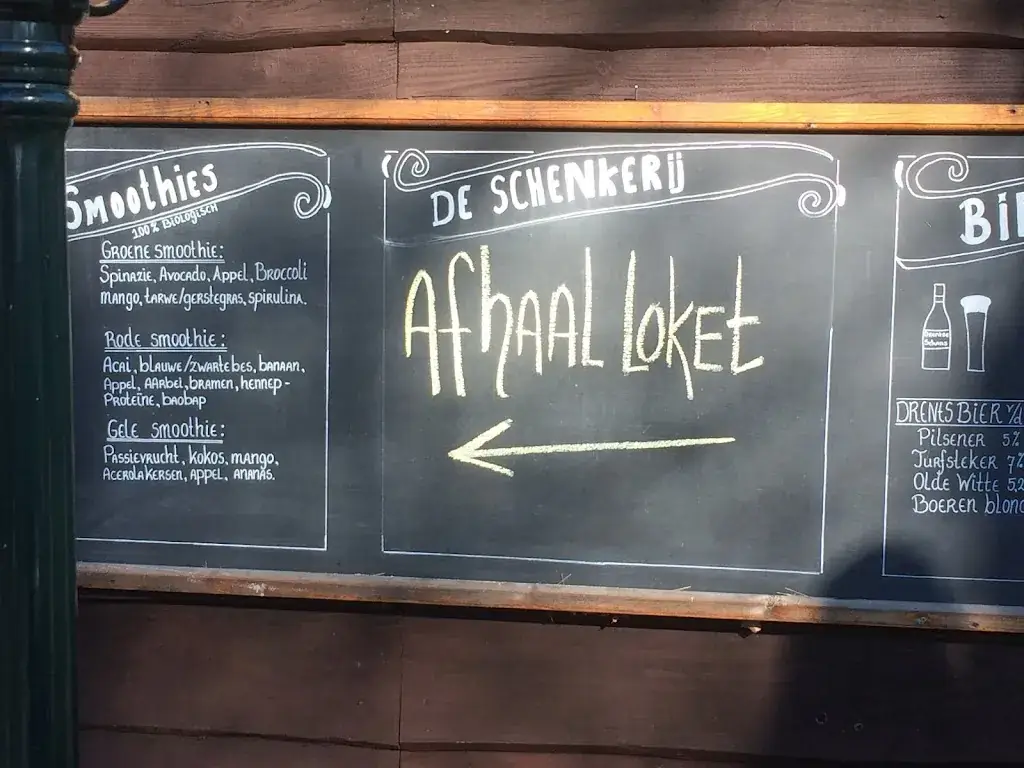 Smoothies
100% Biologisch
Groene smoothie:
Spinazie, Avocado, Appel, Broccoli
mango, tarwe/gerstegras, spirulina.
Rode smoothie:
Acai, blauwe/zwarte bes, banaan,
Appel, AArbei, bramen, hennep-
Proteïne, baobap
Gele smoothie:
Passievrucht, kokos, mango,
Acerola kersen, appel, ananas.
DE SCHENKERIJ
Afhaal loket
Bi
DRENTS BiER v/d
Pilsener 5%
Turfsteker 7%
Olde Witte 5,2
Boeren blond